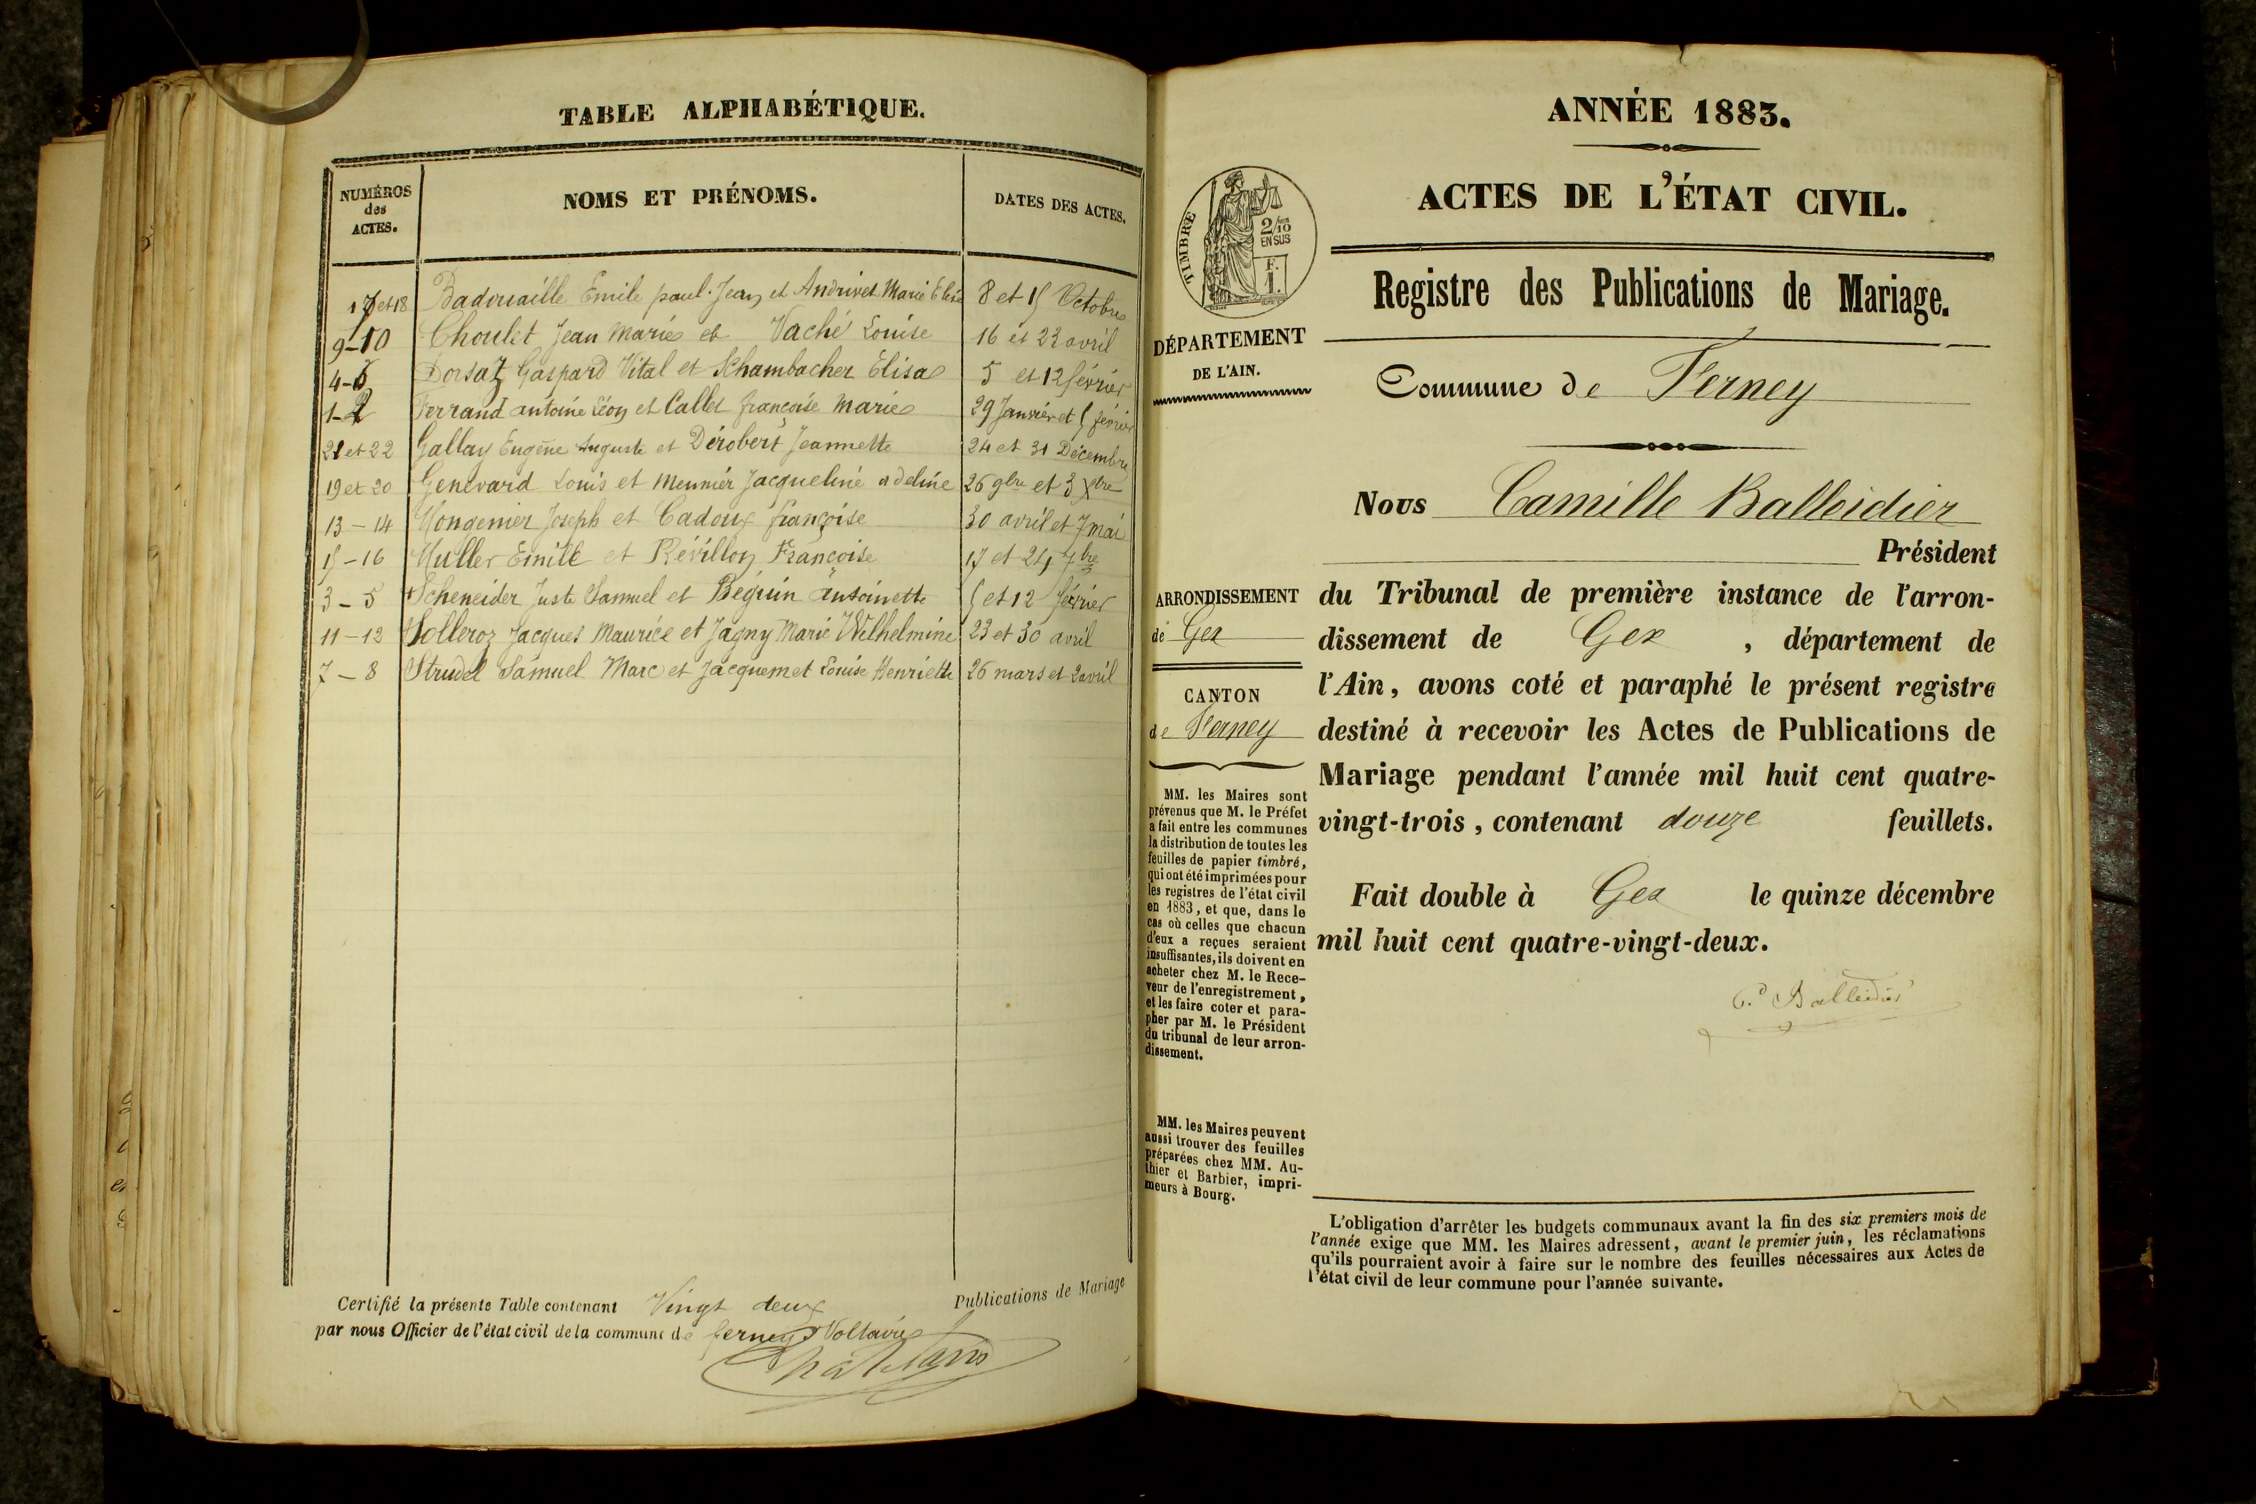 TABLE ALPHABÉTIQUE.
NUMÉROS
des
ACTES.
NOMS ET PRÉNOMS.
DATES DES ACTES.
17 et 18 Badouaille Emile paul Jean et Andrivet Marie Elisa 8 et 15 Octobre
9-10 Choulet Jean Marie et Vaché Louise 16 et 23 avril
4-6 Dorsaz Gaspard Vital et Schambacher Elisa 5 et 12 février
1-2 Ferrand antoine Léon et Callet françoise Marie 29 Janvier et 5 février
21 et 22 Gallay Eugène Auguste et Dérobert Jeannette 24 et 31 Décembre
19 et 20 Genevard Louis et Meunier Jacqueline adeline 26 9bre et 3 Xbre
13 - 14 Mongenier Joseph et Cadoux françoise 30 avril et 7 mai
15 - 16 Muller Emile et Révillon Françoise 17 et 24 7bre
3 - 5 Scheneider Juste Samuel et Béguin Antoinette 5 et 12 février
11 - 12 Solleroz Jacques Maurice et Jagny Marie Wilhelmine 23 et 30 avril
7 - 8 Strudel Samuel Marc et Jacquemet Louise Henriette 26 mars et 2 avril
Certifié la présente Table contenant Vingt deux Publications de Mariage
par nous Officier de l'état civil de la commune de ferney Voltaire
ANNÉE 1883.
ACTES DE L'ÉTAT CIVIL.
TIMBRE
2/10
EN SUS
F.
1.
Registre des Publications de Mariage.
DÉPARTEMENT
DE L'AIN.
Commune de Ferney
Nous Camille Balleidier
Président
du Tribunal de première instance de l'arron-
dissement de Gex , département de
l'Ain, avons coté et paraphé le présent registre
destiné à recevoir les Actes de Publications de
Mariage pendant l'année mil huit cent quatre-
vingt-trois, contenant douze feuillets.
Fait double à Gex le quinze décembre
mil huit cent quatre-vingt-deux.
C. Balleidier
ARRONDISSEMENT
de Gex
CANTON
de Ferney
MM. les Maires sont
prévenus que M. le Préfet
a fait entre les communes
la distribution de toutes les
feuilles de papier timbré,
qui ont été imprimées pour
les registres de l'état civil
en 1883, et que, dans le
cas où celles que chacun
d'eux a reçues seraient
insuffisantes, ils doivent en
acheter chez M. le Rece-
veur de l'enregistrement,
et les faire coter et para-
pher par M. le Président
du tribunal de leur arron-
dissement.
MM. les Maires peuvent
aussi trouver des feuilles
préparées chez MM. Au-
thier et Barbier, impri-
meurs à Bourg.
L'obligation d'arrêter les budgets communaux avant la fin des six premiers mois de
l'année exige que MM. les Maires adressent, avant le premier juin, les réclamations
qu'ils pourraient avoir à faire sur le nombre des feuilles nécessaires aux Actes de
l'état civil de leur commune pour l'année suivante.